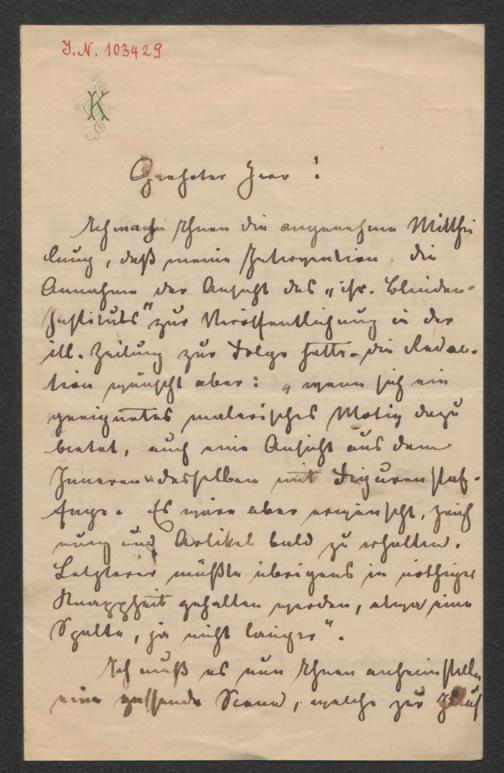 I.N. 103429
K
Geehrter Herr!
Ich mache Ihnen die angenehme Mitthei
lung, daß meine Intervention die
Annahme der Ansicht des „isr. Blinden-
Instituts" zur Veröffentlichung in der
ill. Zeitung zur Folge hatte. die Redac-
tion wünscht aber: „wenn sich ein
geeignetes malerisches Motiv dazu
bietet, auch eine Ansicht aus dem
Inneren desselben mit Figurenstaf-
fage. Es wäre aber erwünscht, Zeich
nung und Artikel bald zu erhalten.
Letzterer müßte übrigens in nöthiger
Knappheit gehalten werden, etwa eine
Spalte, ja nicht länger".
Ich muß es nun Ihnen anheimstellen
eine passende Scene, welche zur